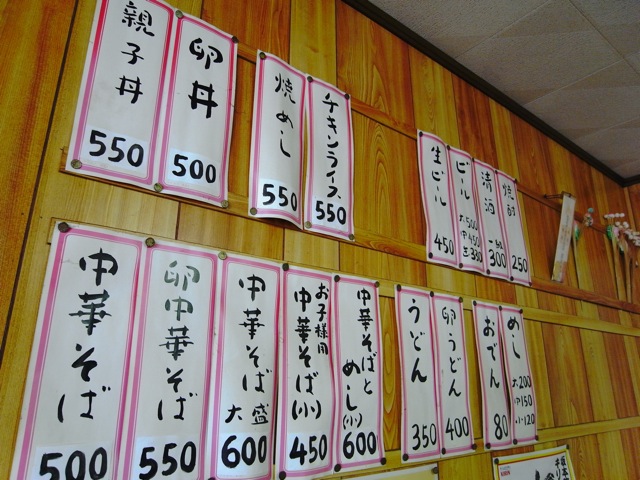 親子丼
550
卵丼
500
焼めし
550
チキンライス
550
生ビール
450
ビール
大500
中450
清酒
300
焼酎
250
中華そば
500
卵中華そば
550
中華そば
大盛
600
お子様用
中華そば(小)
450
中華そばと
めし(小)
600
うどん
350
卵うどん
400
おでん
80
めし
大200
中150
小120